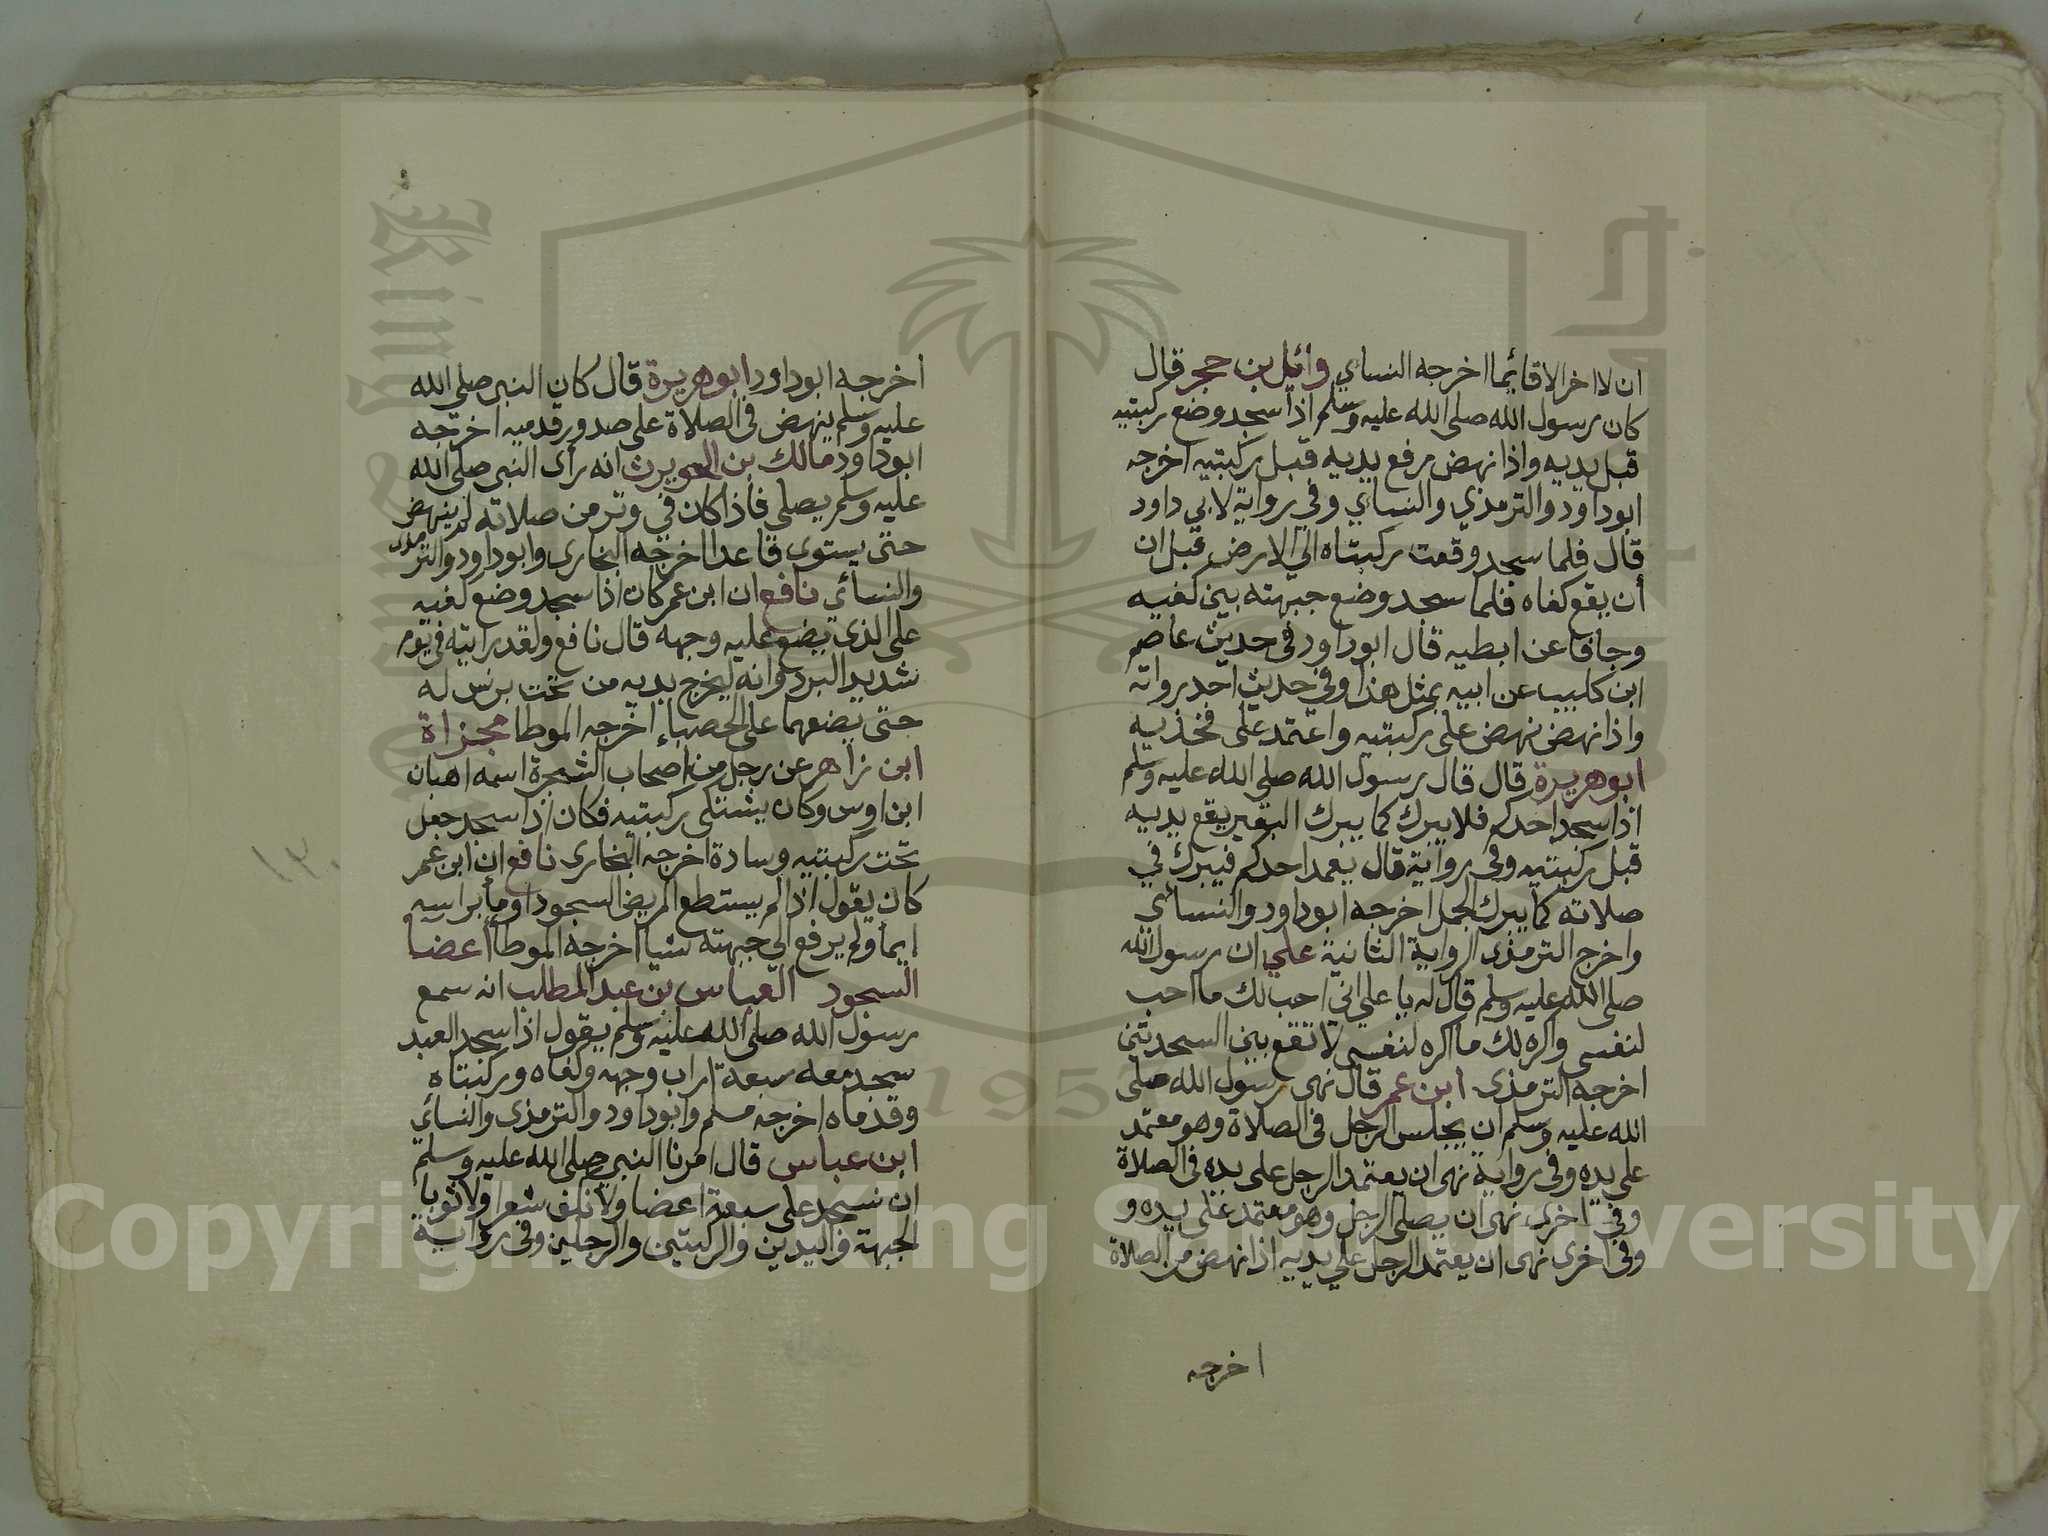 ان لا اخر الا قائما اخرجه النساي وائيل بن حجر قال
كان رسول الله صلى الله عليه وسلم اذا سجد وضع ركبتيه
قبل يديه واذا نهض رفع يديه قبل ركبتيه اخرجه
ابوداود والترمذي والنساي وفي رواية لابي داود
قال فلما سجد وقعت ركبتاه الي الارض قبل ان
أن يقع كفاه فلما سجد وضع جبهته بين كفيه
وجافا عن ابطيه قال ابوداود في حديث عاصم
ابن كليب عن ابيه بمثل هذا وفي حديث احد رواته
واذا نهض نهض على ركبتيه واعتمد على فخذيه
ابوهريرة قال قال رسول الله صلى الله عليه وسلم
اذا سجد احدكم فلا يبرك كما يبرك البعير يقع يديه
قبل ركبتيه وفي رواية قال يعمد احدكم فيبرك في
صلاته كما يبرك الجمل اخرجه ابوداود والنسائي
واخرج الترمذي الرواية الثانية علي ان رسول الله
صلى الله عليه وسلم قال له يا علي اني احب لك ما احب
لنفسي واكره لك ما اكره لنفسي لا تقع بين السجدتين
اخرجه الترمذي ابن عمر قال نهى رسول الله صلى
الله عليه وسلم ان يجلس الرجل في الصلاة وهو معتمد
على يده وفي رواية نهى ان يعتمد الرجل على يده في الصلاة
وفي اخرى نهى ان يصلى الرجل وهو معتمد على يده و
وفي اخرى نهى ان يعتمد الرجل علي يديه اذا نهض من الصلاة
اخرجه
اخرجه ابوداود ابوهريرة قال كان النبي صلى الله
عليه وسلم ينهض في الصلاة على صدور قدميه اخرجه
ابوداود مالك بن الحويرث انه رأى النبي صلى الله
عليه وسلم يصلى فاذا كان في وتر من صلاته لم ينهض
حتى يستوى قاعدا اخرجه البخاري وابوداود والترمذى
والنسائي نافع ان ابن عمر كان اذا سجد وضع كفيه
على الذي يضع عليه وجهه قال نافع ولقد رايته في يوم
شديد البرد وانه ليخرج يديه من تحت برنس له
حتى يضعهما على الحصباء اخرجه الموطا مجزاة
ابن زاهر عن رجل من اصحاب الشجرة اسمه اهبان
ابن اوس وكان يشتكى ركبتيه فكان اذا سجد جعل
تحت ركبتيه وسادة اخرجه البخارى نافع ان ابن عمر
كان يقول اذا لم يستطع المريض السجود اومأ براسه
ايماء ولم يرفع الي جبهته شيا اخرجه الموطا أعضا
السجود العباس بن عبد المطلب انه سمع
رسول الله صلى الله عليه وسلم يقول اذا سجد العبد
سجد معه سبعة اراب وجهه وكفاه وركبتاه
وقدماه اخرجه مسلم وابوداود والترمذى والنسائي
ابن عباس قال امرنا النبي صلى الله عليه وسلم
ان نسجد على سبعة اعضا ولا نكف شعرا ولا ثوبا
الجبهة واليدين والركبتين والرجلين وفي رواية
١٣٠
King Saud University
1957
Copyright © King Saud University